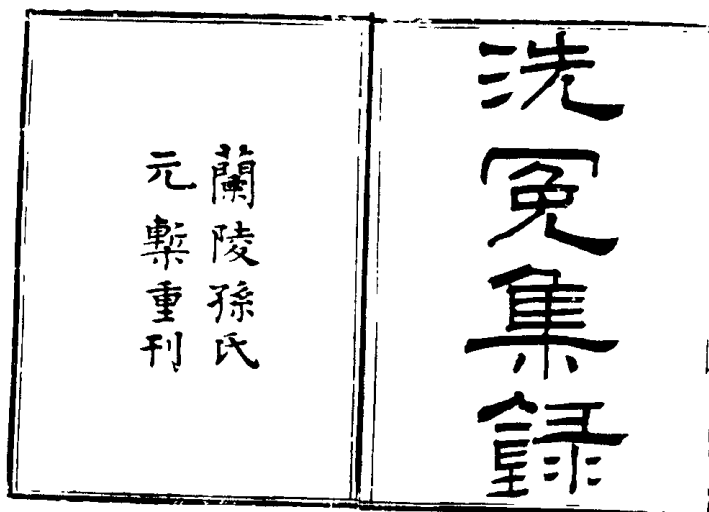 洗冤集錄
蘭陵孫氏
元槧重刊